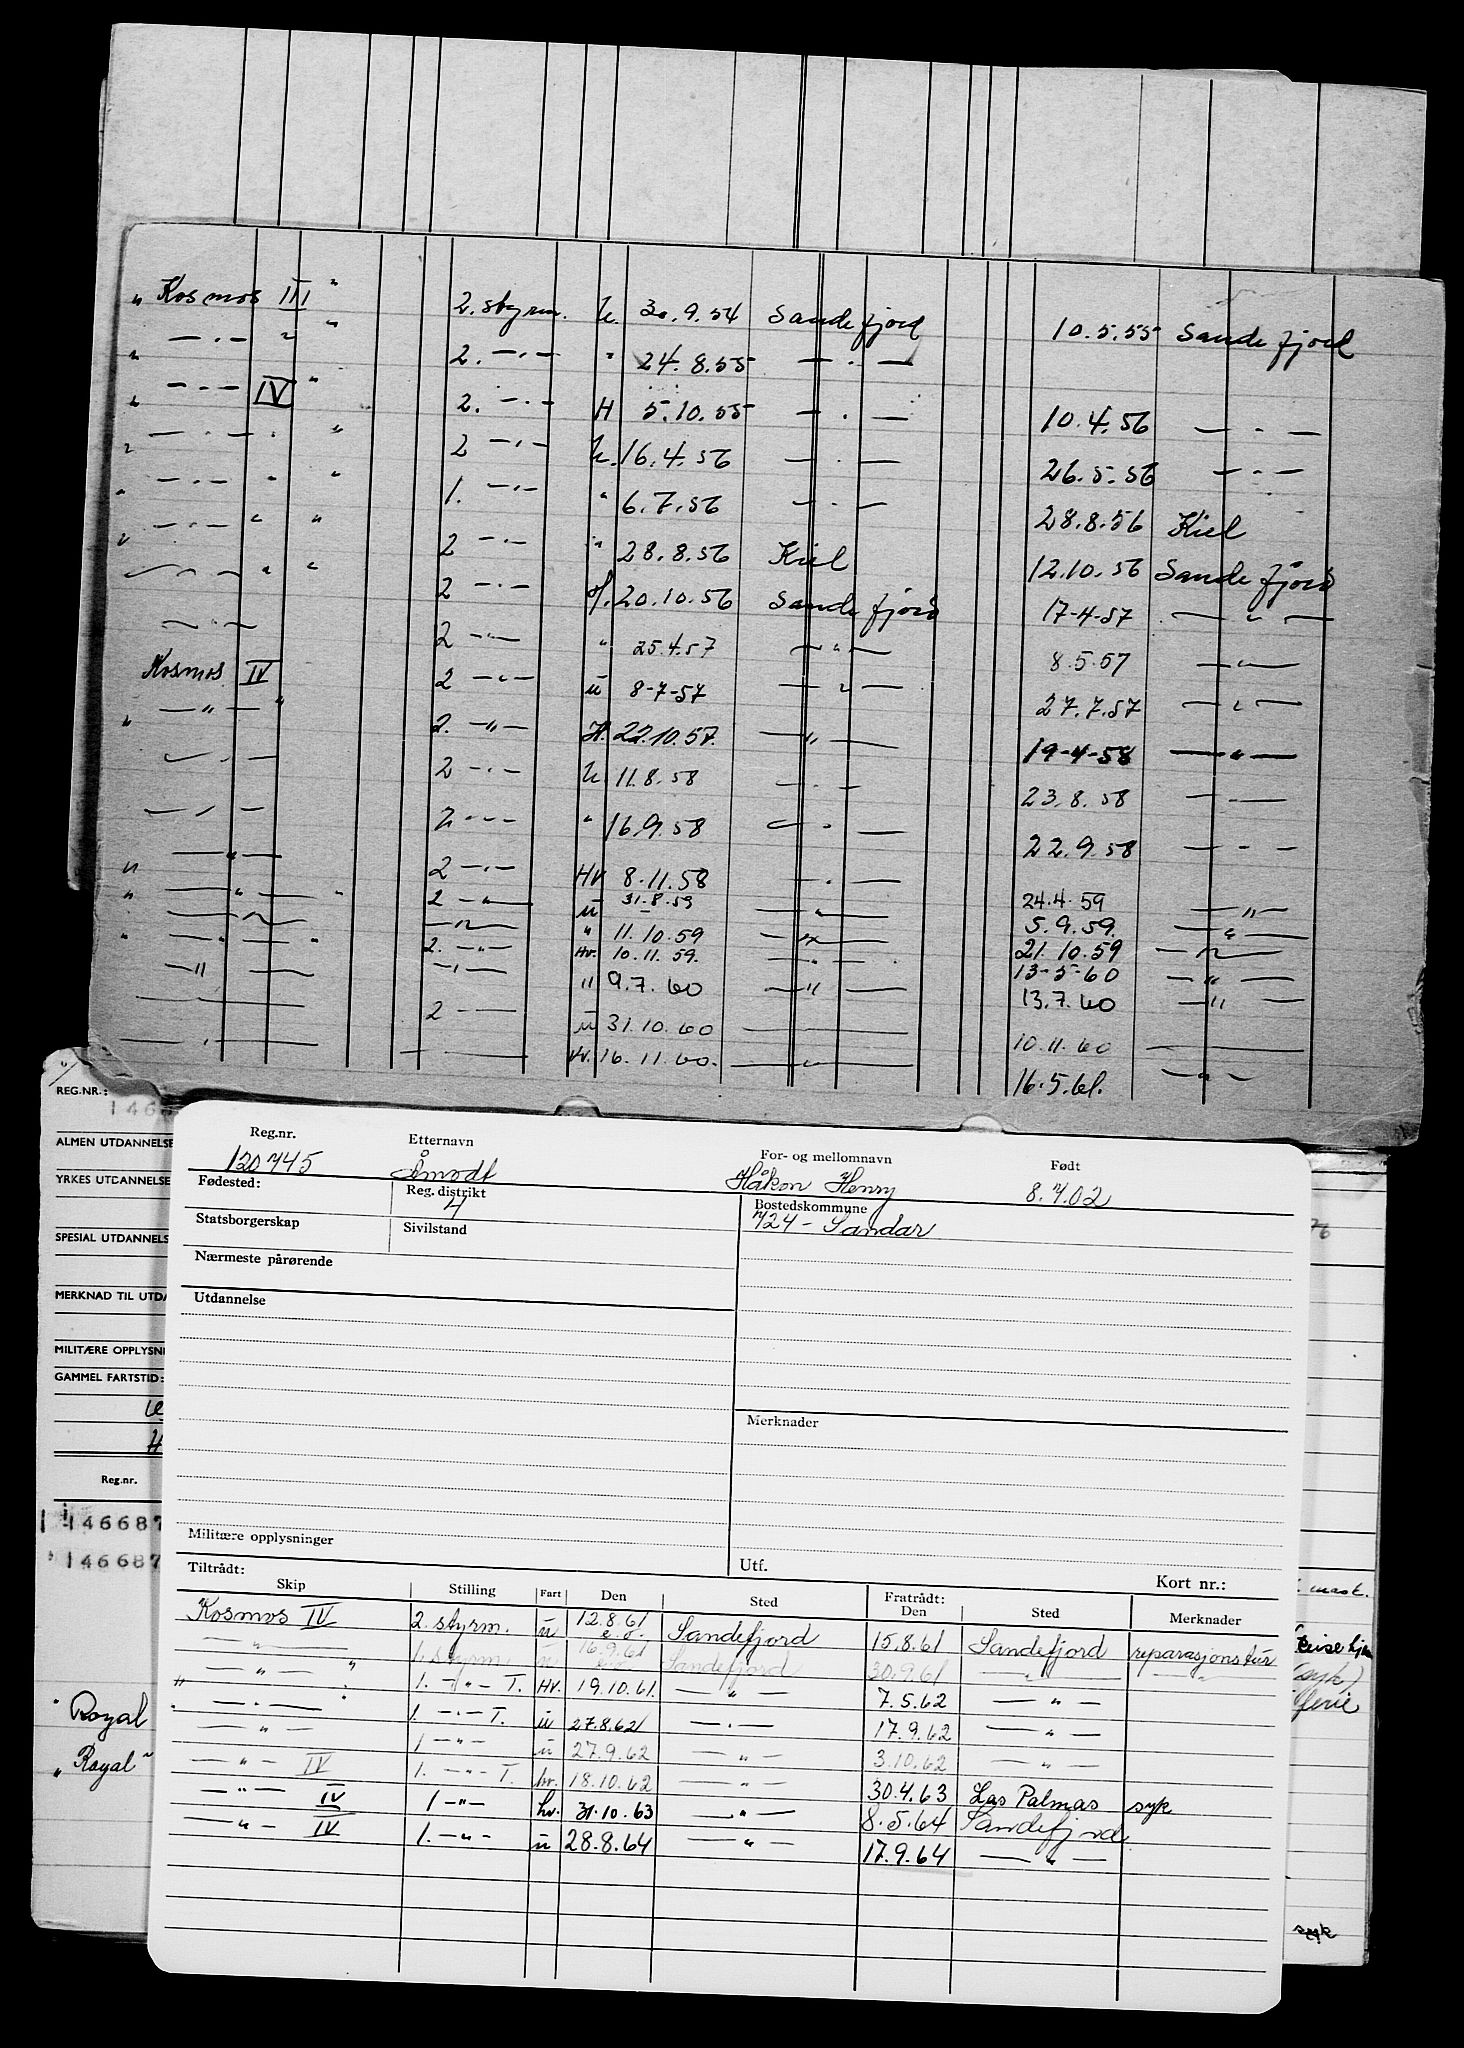 " Kosmos III " 2. styrm. U. 30.9.54 Sandefjord 10.5.55 Sandefjord
" — . — " " 2. — . — " 24.8.55 — . —
" — . — IV " 2. — . — H 5.10.55 — . — 10.4.56 — . —
" — . — . " 2 — . — U. 16.4.56 — . — 26.5.56 — . —
" — . — " " 1. — . — " 6.7.56 — . — 28.8.56 Kiel
" — . — " " 2 — . — " 28.8.56 Kiel 12.10.56 Sandefjord
— . — " " 2 — . — H. 20.10.56 Sandefjord 17-4-57 — " —
— . — 2 — " — " 25.4.57 — " — 8.5.57 — " —
Kosmos IV 2 — . — ū 8-7-57 — " — 27.7.57 — " —
" — " — " 2. — " — H. 22.10.57. — " — 19-4-58 — " —
— . — 2 — . — U. 11.8.58 — . — 23.8.58 — . —
— . — 2 — . — " 16.9.58 — " — 22.9.58 — . —
" — " — 2 — . — HV 8.11.58 — . — 24.4.59 — " —
" — " — " 2 — " — ū 31.8.59 — " — 5.9.59. — " —
— " — — " — " 11.10.59 — " — 21.10.59 — " —
" — " — " 2. — " — Hv. 10.11.59. — " — 13-5-60 — " —
— " — — . — " 9.7.60 — " — 13.7.60 — " —
——— 2 — — ū 31.10.60 ——— 10.11.60 ———
— . — ——— Hv. 16.11.60. — " — 16.5.61. — " —
REG.NR.:
146
ALMEN UTDANNELSE
YRKES UTDANNELSE
SPESIAL UTDANNELS
MERKNAD TIL UTDA
MILITÆRE OPPLYSNI
GAMMEL FARTSTID:
U
H
Reg.nr.
146687
146687
" Royal
" Royal "
76
mask.
(syk)
ferie
syk
Reg.nr. Etternavn For- og mellomnavn Født
120745 Åmodt Håkon Henry 8.7.02
Fødested: Reg. distrikt Bostedskommune
4 724 - Sandar
Statsborgerskap Sivilstand
Nærmeste pårørende
Utdannelse
Merknader
Militære opplysninger Utf.
Tiltrådt: Kort nr.:
Skip Stilling Fart Den Sted Fratrådt: Den Sted Merknader
Kosmos IV 2. styrm. ū 12.8.61 Sandefjord 15.8.61 Sandefjord reparasjonstur
e.o.
— " — 1. styrm. ū 16.9.61 Sandefjord 30.9.61 — " — — " —
" — " — " 1. — " — T. HV. 19.10.61. — " — 7.5.62 — " —
" — . — " 1. — . — T. ū 27.8.62 — . — 17.9.62 — " —
— " — 1 — " — ū 27.9.62 — " — 3.10.62 — " —
— " — IV 1. — " — T. hv. 18.10.62 — " — 30.4.63 Las Palmas syk
— " — IV 1 — " — hv. 31.10.63 — " — 8.5.64 Sandefjord
— " — IV 1. — " — ū 28.8.64 — " — 17.9.64 — " —